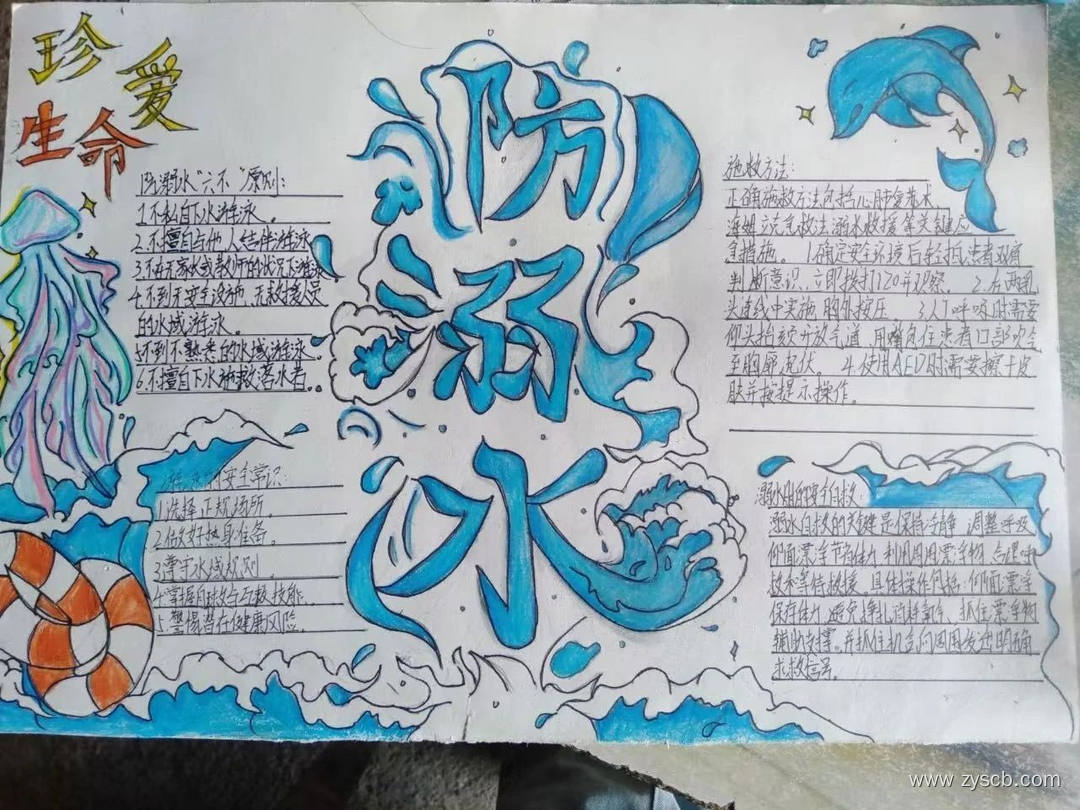 珍爱
生命
防溺水
防溺水“六不”原则:
1.不私自下水游泳。
2.不擅自与他人结伴游泳
3.不在无家长或教师的状况下游泳
4.不到无安全设施、无救援人员
的水域游泳。
5.不到不熟悉的水域游泳。
6.不擅自下水施救落水者。
安全常识:
1.选择正规场所
2.做好热身准备。
3.遵守水域规则。
4.掌握自救与互救技能。
5.警惕潜在健康风险。
施救方法:
正确施救方法包括心肺复苏术
海姆立克急救法溺水救援等关键应
急措施。 1.确定安全环境后轻拍患者双肩
判断意识,立即拨打120并观察。 2.在两乳
头连线中实施胸外按压 3.人工呼吸时需要
仰头抬颏开放气道,用嘴包住患者口部吹气
至胸廓起伏。 4.使用AED时需要擦干皮
肤并按提示操作。
溺水时的自救:
溺水自救的关键是保持冷静,调整呼吸
仰面漂浮节省体力利用周围漂浮物,合理呼
救和等待救援。具体操作包括:仰面漂浮
保存体力,避免挣扎消耗氧气,抓住漂浮物
辅助支撑。并抓住机会向周围发出明确
求救信号。
www.zyscb.com